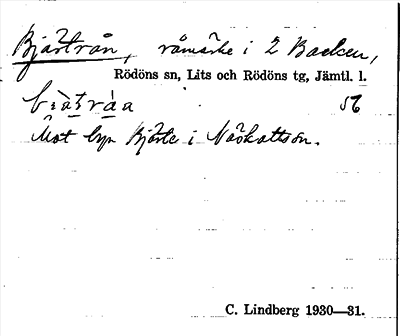 Bjärtrån, råmärke i 2 Backen,
Rödöns sn, Lits och Rödöns tg, Jämtl. l.
56
Mot byn Bjärte i Näskottsn.
C. Lindberg 1930—31.